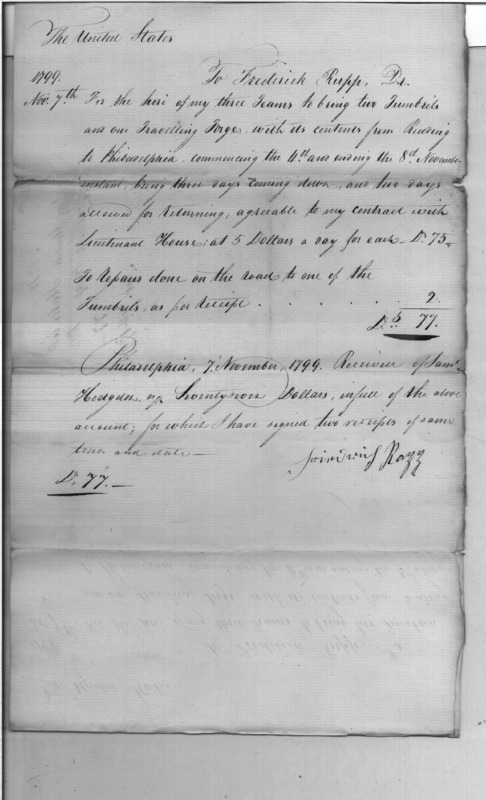 The United States
1799. To Frederick Rupp, Dr.
Nov. 7th For the hire of my three Teams to bring two Tumbrils
and one Travelling Forge, with its contents from Reading
to Philadelphia, commencing the 4th and ending the 8th November
instant, being three days coming down, and two days
allowed for returning, agreable to my contract with
Lieutenant House; at 5 Dollars a day for each – Drs 75
To repairs done on the road to one of the
Tumbrils, as per receipt . . . . . . 2
Drs 77.
Philadelphia, 7 November, 1799. Received of Saml
Hodgdon, Seventy seven Dollars, in full of the above
account; for which I have signed two receipts of same
tenor and date —
Drs 77. —